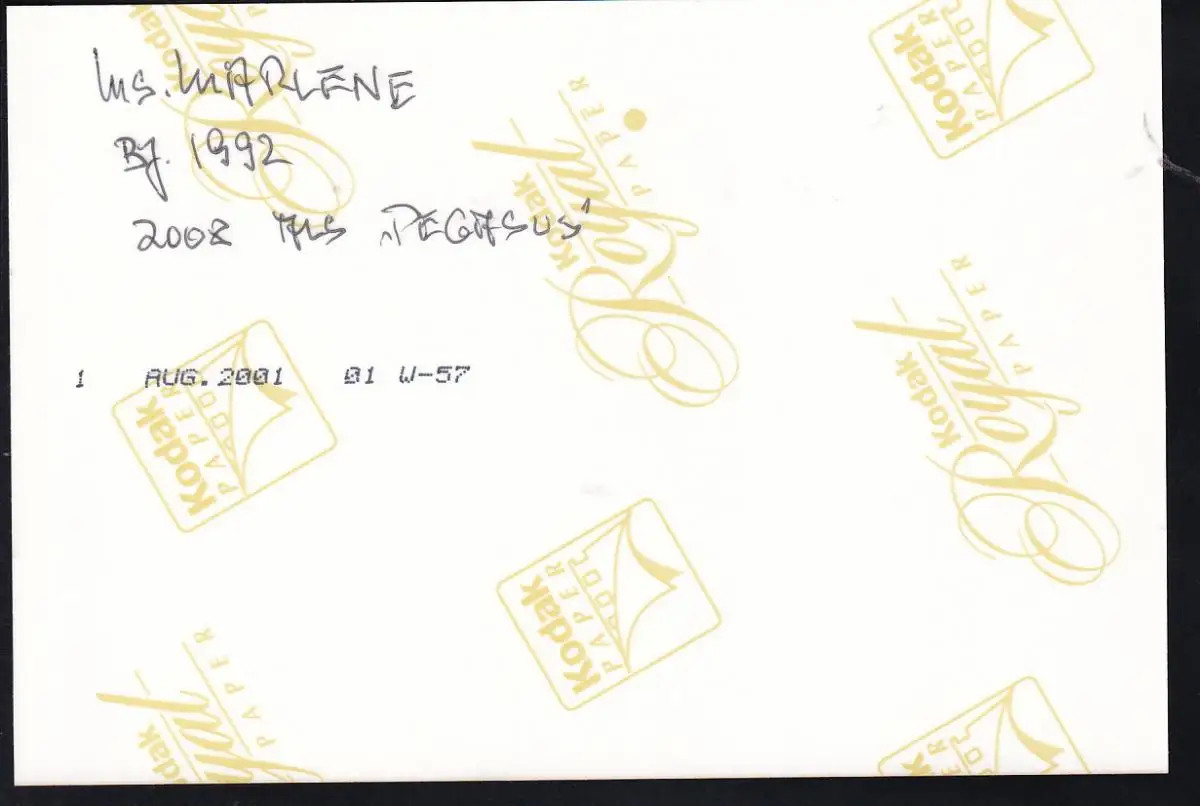 Ms. MARLENE
Bj. 1992
2008 ALS „PEGASUS"
1 AUG.2001 01 W-57
Kodak Royal PAPER
Kodak PAPER
Kodak Royal PAPER
Kodak Royal PAPER
Kodak PAPER
Kodak PAPER
Kodak Royal PAPER
Kodak PAPER